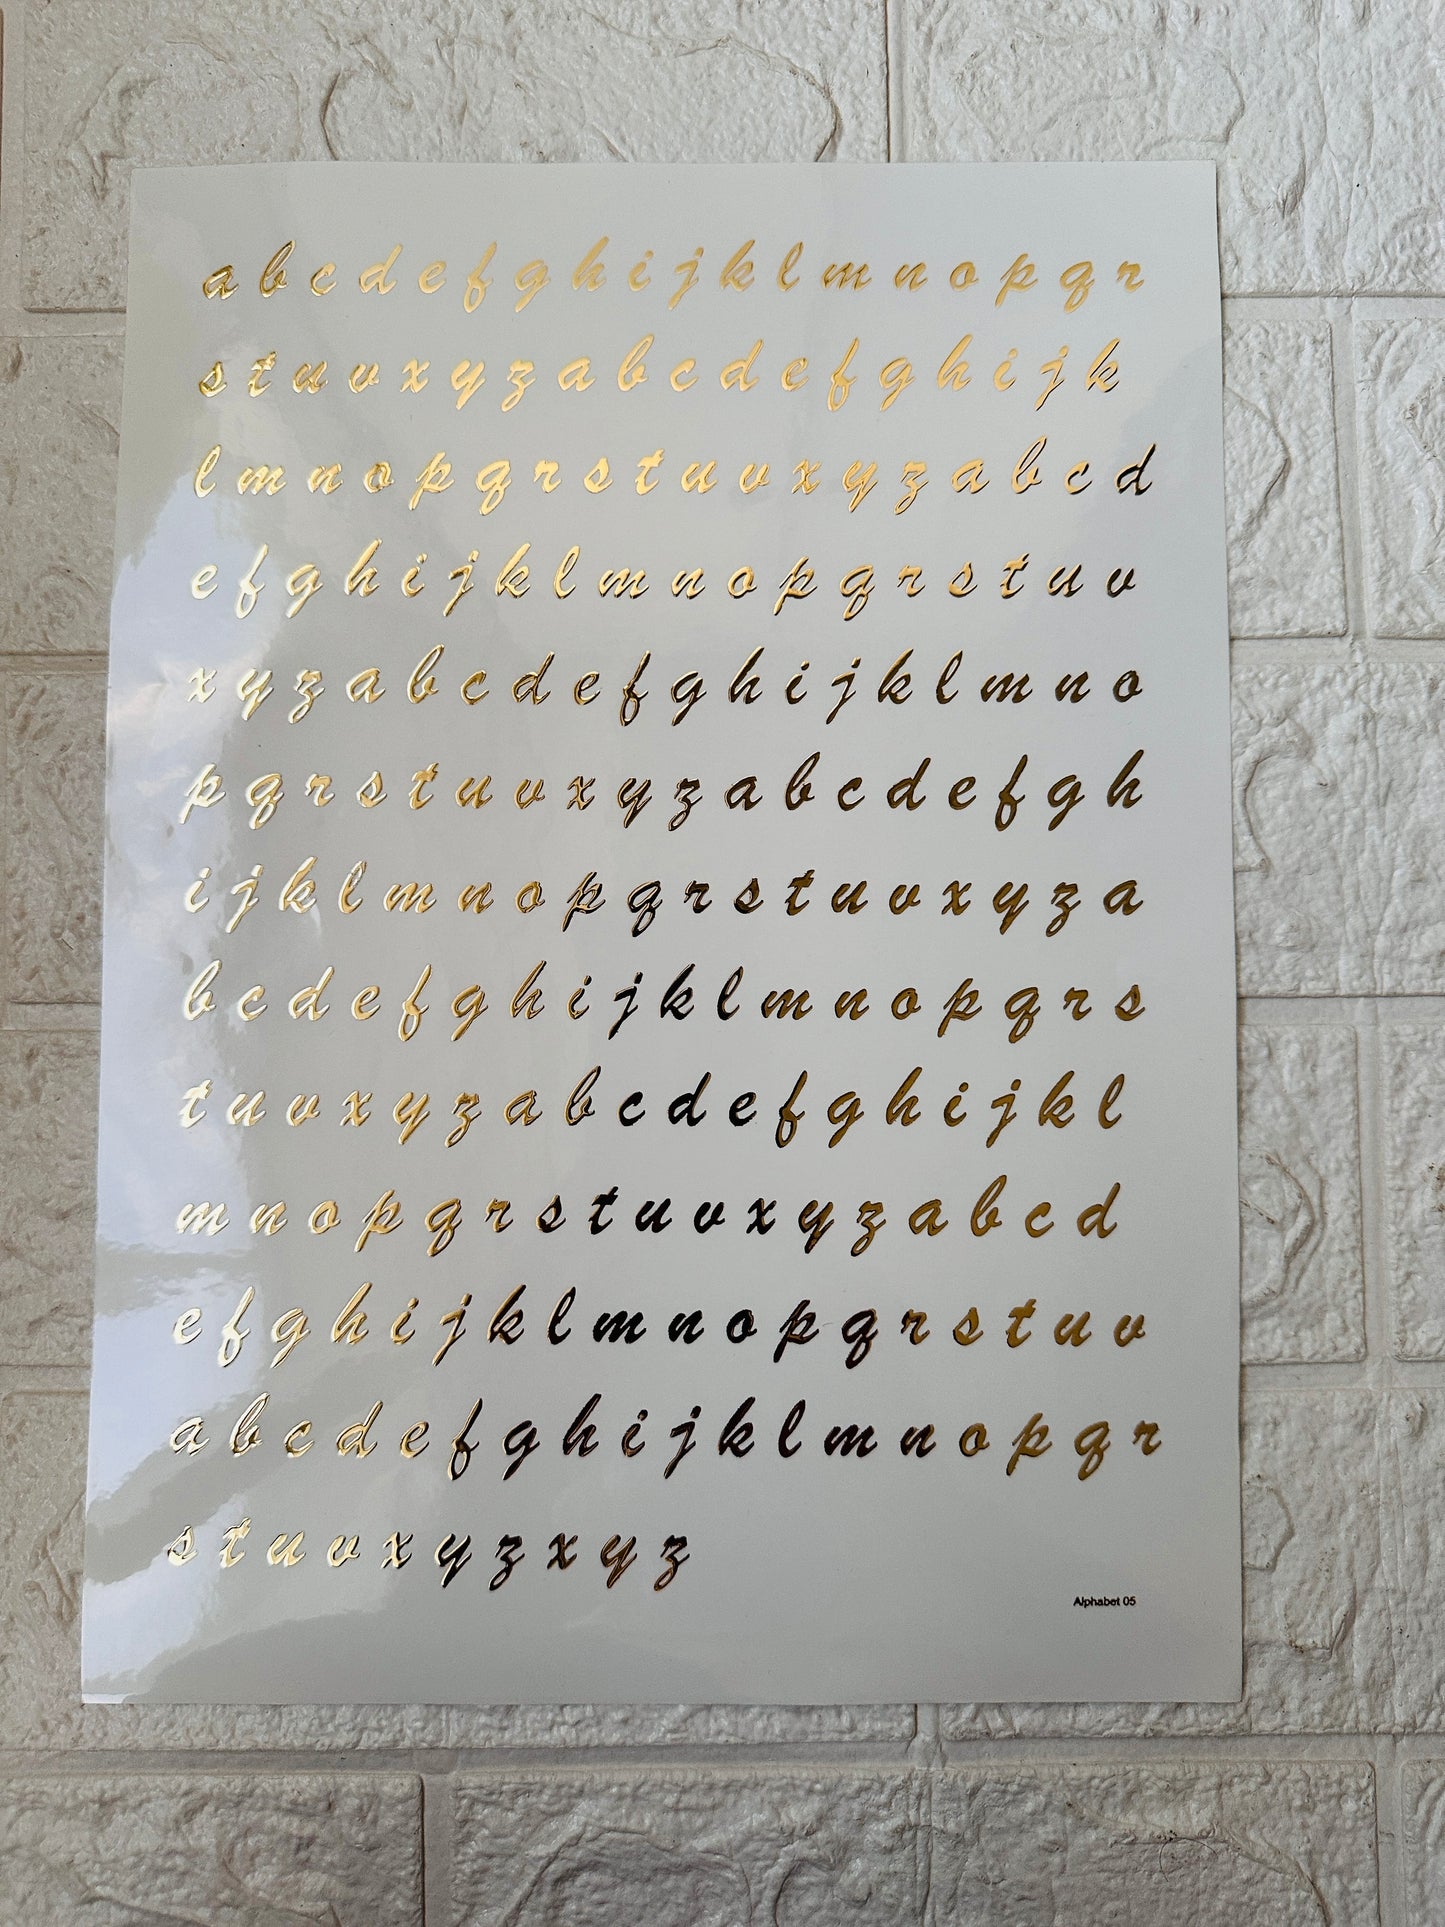 a b c d e f g h i j k l m n o p q r
s t u v x y z a b c d e f g h i j k
l m n o p q r s t u v x y z a b c d
e f g h i j k l m n o p q r s t u v
x y z a b c d e f g h i j k l m n o
p q r s t u v x y z a b c d e f g h
i j k l m n o p q r s t u v x y z a
b c d e f g h i j k l m n o p q r s
t u v x y z a b c d e f g h i j k l
m n o p q r s t u v x y z a b c d
e f g h i j k l m n o p q r s t u v
a b c d e f g h i j k l m n o p q r
s t u v x y z x y z
Alphabet 05